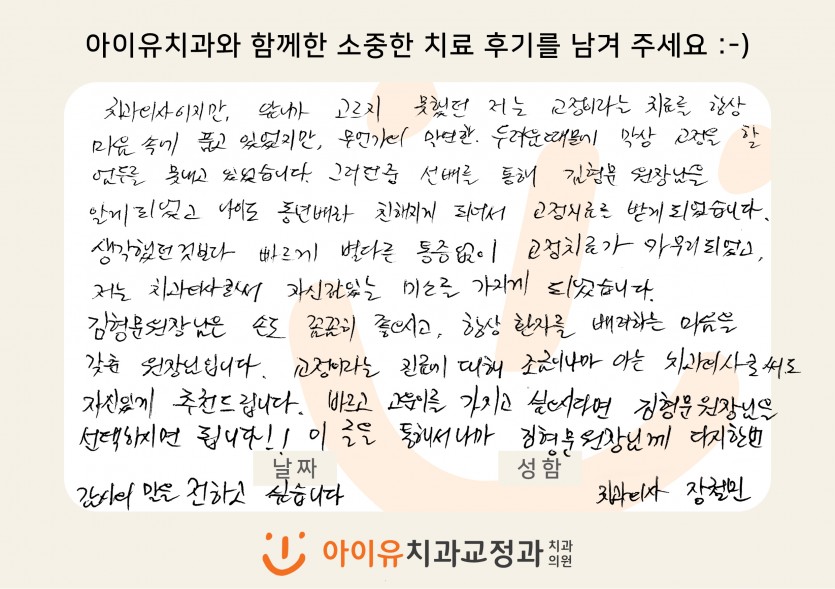 아이유치과와 함께한 소중한 치료 후기를 남겨 주세요 :-)
치과의사이지만, 앞니가 고르지 못했던 저는 교정이라는 치료를 항상
마음 속에 품고 있었지만, 무언가의 막연한 두려움때문에 막상 교정을 할
엄두를 못내고 있었습니다. 그러던중 선배를 통해 김형문 원장님을
알게 되었고 나이도 동년배라 친해지게 되어서 교정치료를 받게 되었습니다.
생각했던것보다 빠르게 별다른 통증없이 교정치료가 마무리되었고,
저는 치과의사로써 자신감있는 미소를 가지게 되었습니다.
김형문원장님은 손도 꼼꼼히 좋으시고, 항상 환자를 배려하는 마음을
갖춘 원장님입니다. 교정이라는 진료에 대해 조금이나마 아는 치과의사로써도
자신있게 추천드립니다. 바르고 고른이를 가지고 싶으시다면 김형문원장님을
선택하시면 됩니다!! 이 글을 통해서나마 김형문원장님께 다시한번
날짜 성함
감사의 말을 전하고 싶습니다 치과의사 장철민
아이유치과교정과 치과의원